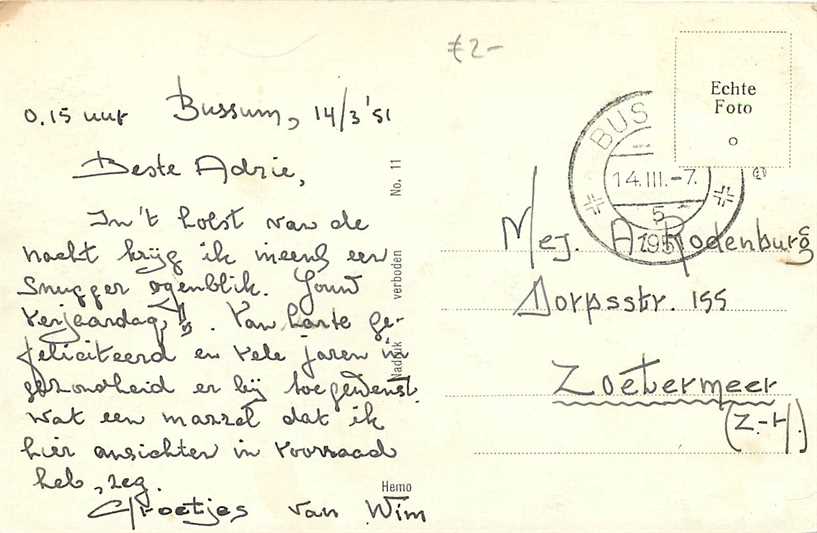 €2-
0.15 uur Bussum, 14/3 '51
Beste Adrie,
In 't holst van de
nacht krijg ik ineens een
snugger ogenblik. Jouw
verjaardag!!. Van harte ge-
feliciteerd en vele jaren in
gezondheid er bij toegewenst.
Wat een mazzel dat ik
hier ansichten in voorraad
heb, zeg.
Groetjes van Wim
Nadruk verboden No. 11
Hemo
Echte
Foto
BUS
14.III.-7.
5
195
Mej. A. Rodenburg
Dorpsstr. 155
Zoetermeer
(Z-H.)